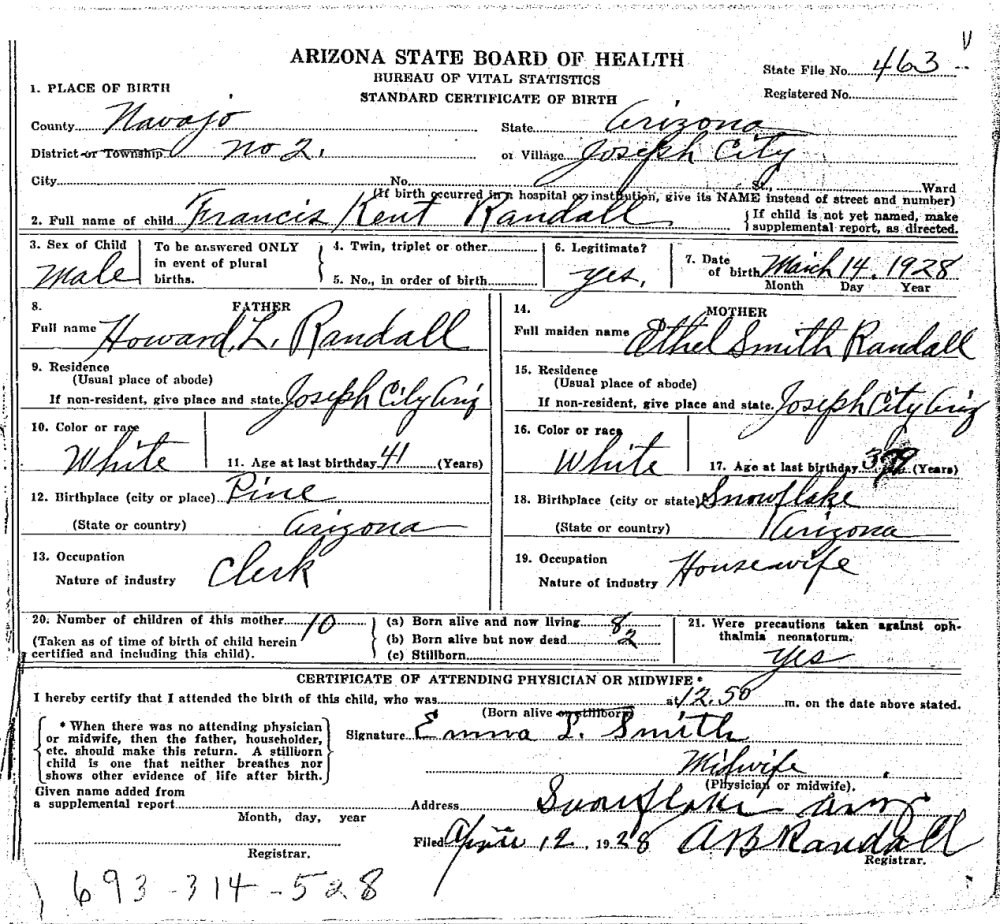 ARIZONA STATE BOARD OF HEALTH
BUREAU OF VITAL STATISTICS
STANDARD CERTIFICATE OF BIRTH
State File No. 463
Registered No.
1. PLACE OF BIRTH
County Navajo State Arizona
District or Township No 2. or Village Joseph City
City No. St., Ward
(If birth occurred in a hospital or institution, give its NAME instead of street and number)
2. Full name of child Francis Kent Randall { If child is not yet named, make supplemental report, as directed.
3. Sex of Child Male
To be answered ONLY in event of plural births.
4. Twin, triplet or other
5. No., in order of birth
6. Legitimate? Yes.
7. Date of birth March 14. 1928
Month Day Year
8. FATHER
Full name Howard L. Randall
9. Residence
(Usual place of abode)
If non-resident, give place and state. Joseph City Ariz
10. Color or race White
11. Age at last birthday 41 (Years)
12. Birthplace (city or place) Pine
(State or country) Arizona
13. Occupation
Nature of industry Clerk
14. MOTHER
Full maiden name Ethel Smith Randall
15. Residence
(Usual place of abode)
If non-resident, give place and state. Joseph City Ariz
16. Color or race White
17. Age at last birthday 39 (Years)
18. Birthplace (city or state) Snowflake
(State or country) Arizona
19. Occupation
Nature of industry Housewife
20. Number of children of this mother 10
(Taken as of time of birth of child herein certified and including this child).
(a) Born alive and now living 8
(b) Born alive but now dead 2
(c) Stillborn
21. Were precautions taken against ophthalmia neonatorum.
Yes
CERTIFICATE OF ATTENDING PHYSICIAN OR MIDWIFE*
I hereby certify that I attended the birth of this child, who was at 12.50 m. on the date above stated.
(Born alive or stillborn)
* When there was no attending physician
or midwife, then the father, householder,
etc. should make this return. A stillborn
child is one that neither breathes nor
shows other evidence of life after birth.
Signature Emma L. Smith
Midwife
(Physician or midwife).
Given name added from
a supplemental report
Month, day, year
Registrar.
Address Snowflake Ariz
Filed April 12, 1928 AB Randall
Registrar.
693-314-528